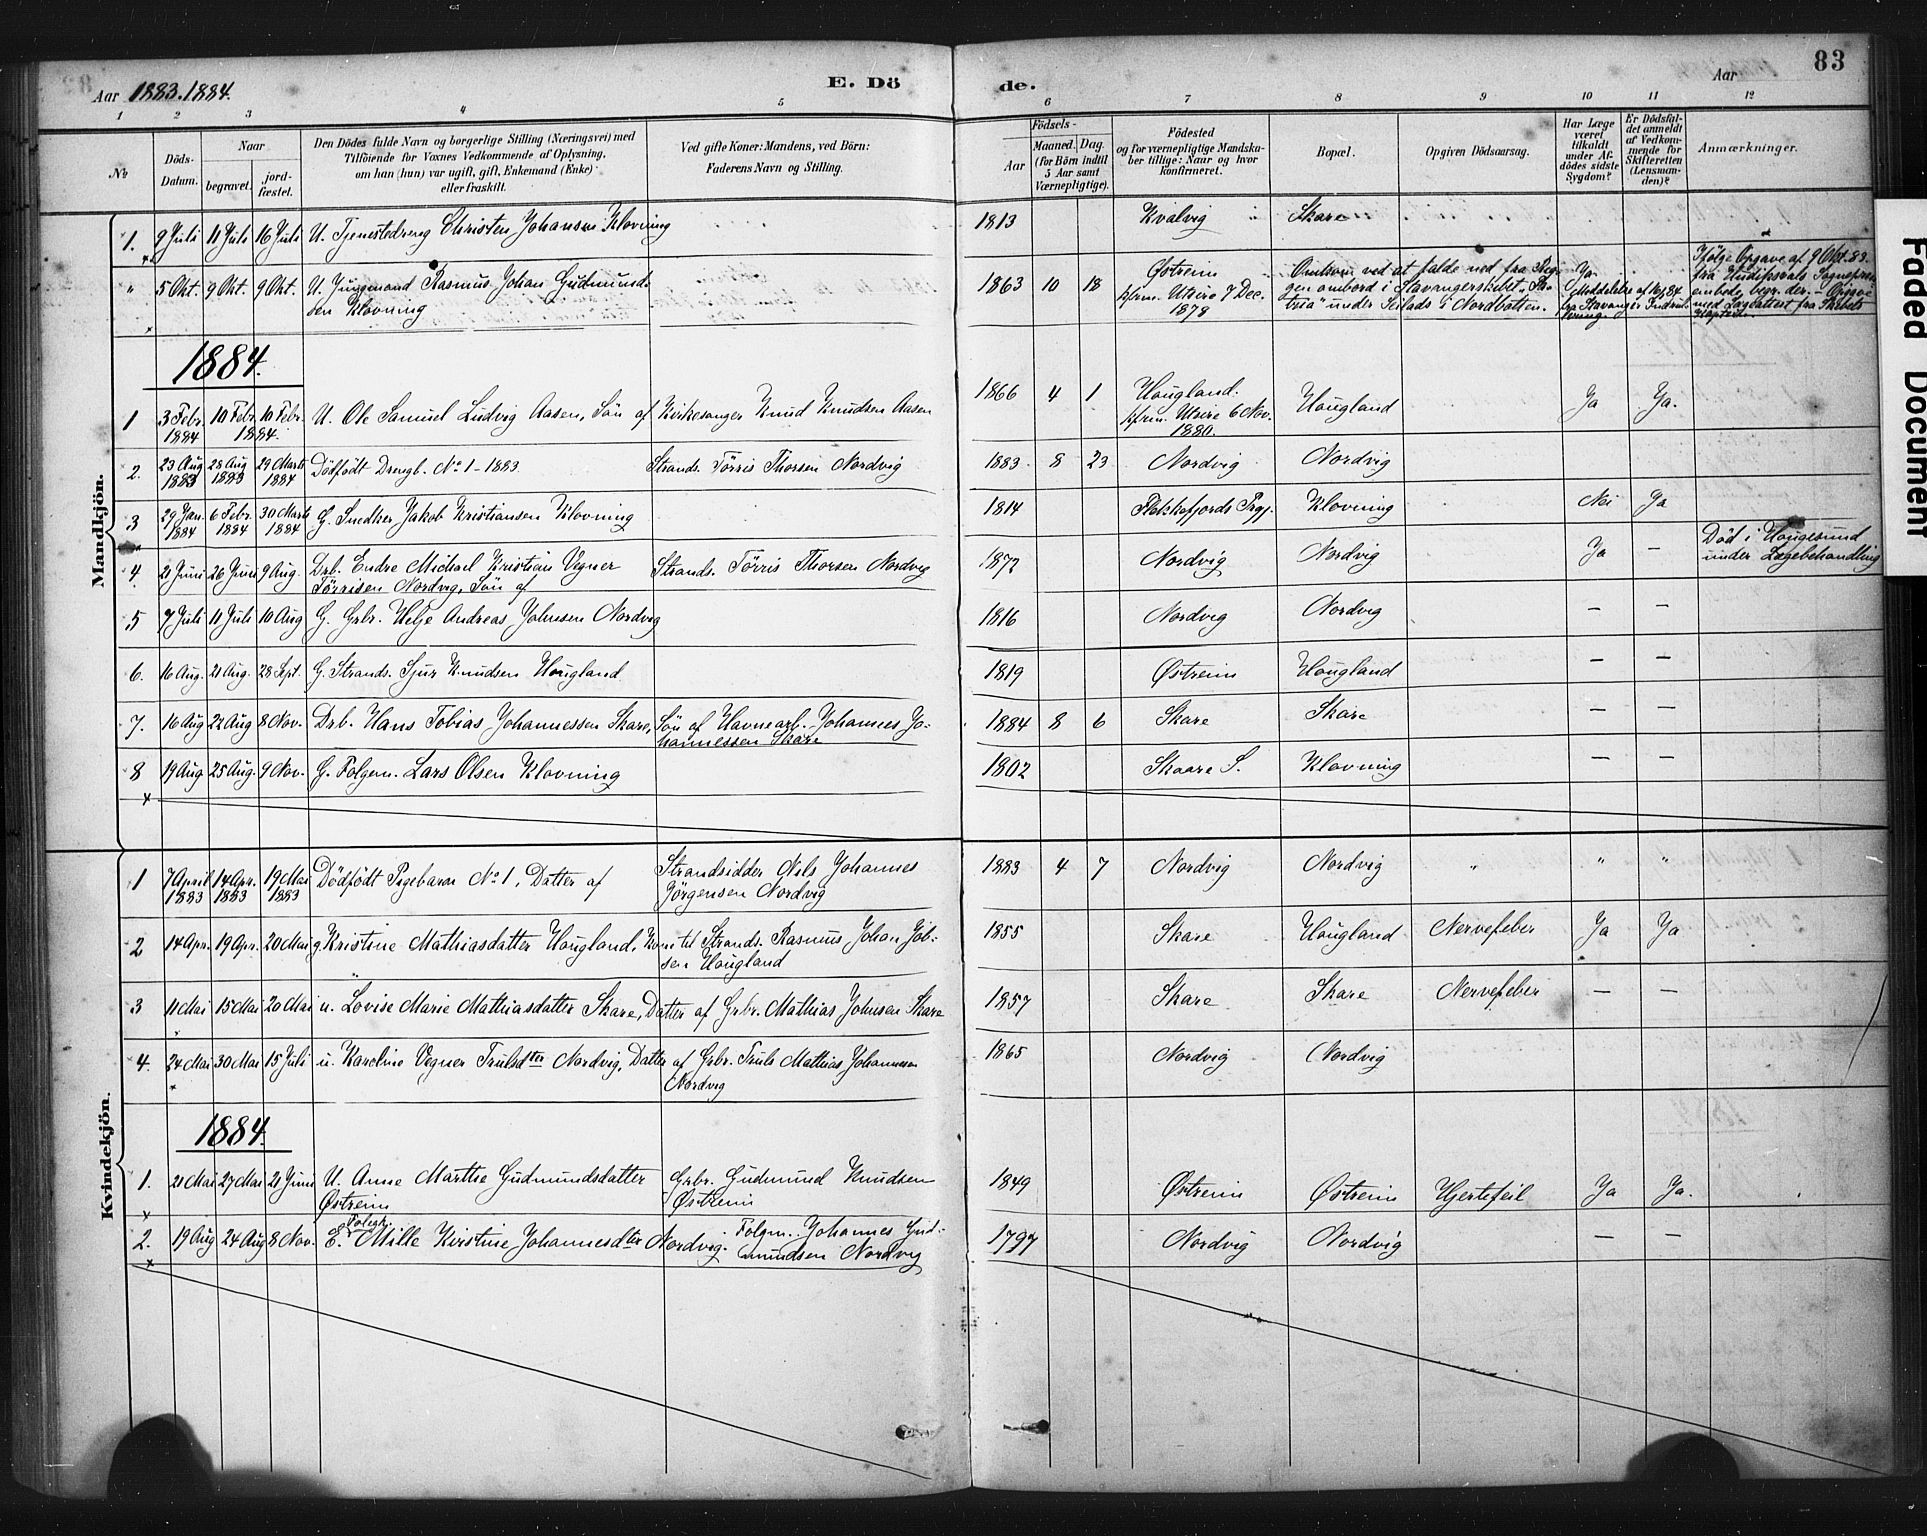 83
Aar 1883.1884.
E. Dö
de.
Aar
1 2 3 4 5 6 7 8 9 10 11 12
No
Döds-
Datum.
Naar
begravet.
jord-
fæstet.
Den Dödes fulde Navn og borgerlige Stilling (Næringsvei) med
Tilföiende for Voxnes Vedkommende af Oplysning,
om han (hun) var ugift, gift, Enkemand (Enke)
eller fraskilt.
Ved gifte Koner: Mandens, ved Börn:
Faderens Navn og Stilling.
Födsels-
Aar
Maaned. Dag.
(for Börn indtil
5 Aar samt
Værnepligtige).
Födested
og for værnepligtige Mandska-
ber tillige: Naar og hvor
konfirmeret.
Bopæl.
Opgiven Dödsaarsag.
Har Læge
været
tilkaldt
under Af-
dödes sidste
Sygdom?
Er Dödsfal-
det anmeldt
af Vedkom-
mende for
Skifteretten
(Lensman-
den)?
Anmærkninger.
Mandkjön.
1. 9 Juli 11 Juli 16 Juli U. Tjenestedreng Christen Johansen Klovning 1813 Kvalvig Skare
" 5 Okt. 9 Okt. 9 Okt. U. Jungmand Rasmus Johan Gudmund-
sen Klovning
1863 10 18 Østreim
kfrm. Utsire 7 Dec.
1878
Omkom ved at falde ned fra Rig-
gen ombord i Stavangerskibet
under Seilads i Nordbotten.
Ja
Meddelelse af
fra Stavanger
Ifølge Opgave af 9 Okt. 83.
fra Hudiksvals
med Lægeattest fra Skibets
1884.
1 3 Febr. 1884 10 Febr. 10 Febr. 1884. U. Ole Samuel Ludvig Aasen, Sön af Kirkesanger Knud Knudsen Aasen 1866 4 1 Hougland.
kfrm. Utsire 6 Nov.
1880.
Hougland Ja Ja.
2. 23 Aug 1883 28 Aug 1883 29 Marts 1884 Dödfödt Drengb. No 1 - 1883. Strands. Törris Thorsen Nordvig 1883 8 23 Nordvig Nordvig
3 29 Jan. 1884 6 Febr. 1884 30 Marts 1884 G. Snedker Jakob Kristiansen Klovning 1814 Klovning Nei Ja
4. 21 Juni 26 Juni 9 Aug. Drb. Endre Michael Kristian Vegner
Törrisen Nordvig, Sön af
Strands. Törris Thorsen Nordvig 1872 Nordvig Nordvig Ja —
Död i Hougesund
under Lægebehandling
5 7 Juli 11 Juli 10 Aug G. Grbr. Helje Andreas Johnsen Nordvig 1816 Nordvig Nordvig — —
6. 16 Aug. 21 Aug. 28 Sept. G. Strands. Sjur Knudsen Hougland 1819 Østreim Hougland — —
7. 16 Aug 22 Aug 8 Nov. Drb. Hans Tobias Johannessen Skare, Sön af Havnearb. Johannes Jo-
hannessen Skare
1884 8 6 Skare Skare — —
8 19 Aug 25 Aug. 9 Nov. G. Folgem. Lars Olsen Klovning 1802 Skaare S. Klovning — —
Kvindekjön.
1 7 April 1883 14 Apr. 1883 19 Mai 1883 Dödfödt Pigebarn No 1, Datter af Strandsidder Nils Johannes
Jörgensen Nordvig
1883 4 7 Nordvig Nordvig " " "
2 14 Apr. 19 Apr. 20 Mai g. Kristine Mathiasdatter Hougland, Kone til Strands. Rasmus Johan Job-
sen Hougland
1855 Skare Hougland Nervefeber Ja Ja
3 11 Mai 15 Mai 20 Mai u. Lovise Marie Mathiasdatter Skare, Datter af Grbr. Mathias Johnsen Skare 1857 Skare Skare Nervefeber — —
4. 24 Mai 30 Mai 15 Juli u. Karoline Vegner Trulsdter Nordvig, Datter af Grbr. Truls Mathias Johannesen
Nordvig
1865 Nordvig Nordvig
1884.
1. 21 Mai 27 Mai 21 Juni U. Anne Marthe Gudmundsdatter
Østreim
Grbr. Gudmund Knudsen
Østreim
1849 Østreim Østreim Hjertefeil Ja Ja.
2. 19 Aug 24 Aug 8 Nov. E. Mille Kristine Johannesdter Nordvig. Folgm. Johannes Gud-
mundsen Nordvig
1797 Nordvig Nordvig — —
Faded Document